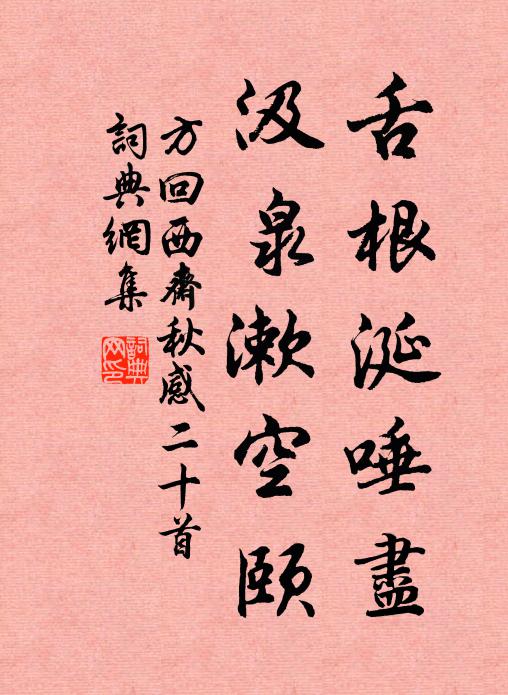 舌根涎唾盡
汲泉漱空頤
方回西齋秋感二十首
詞典網集
詞典網印